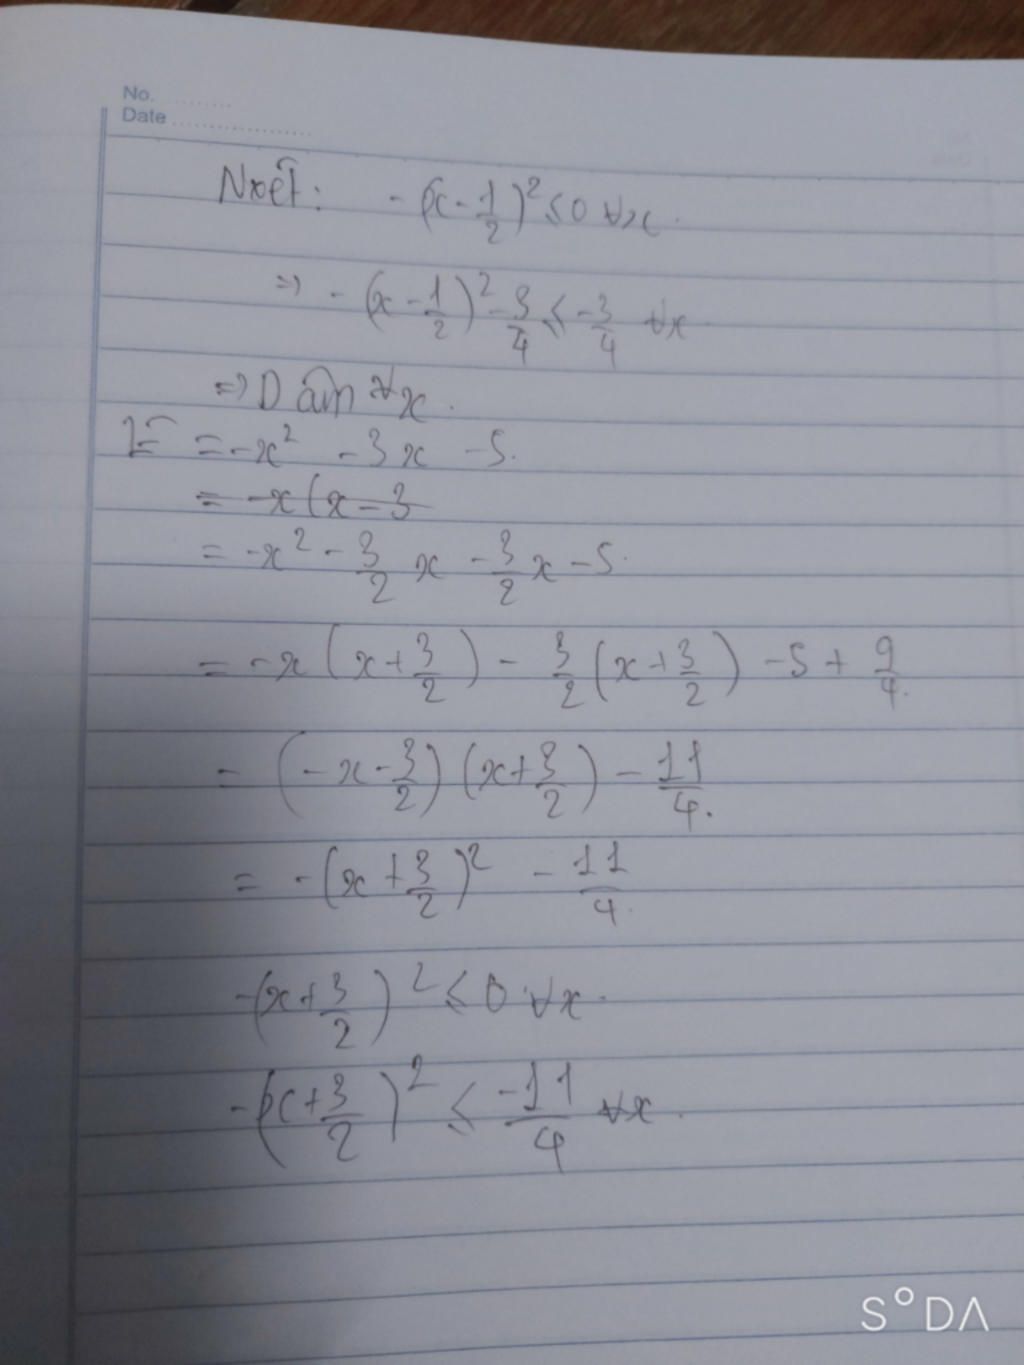 No. ........
Date ..................
Nxét: -(x - 1/2)² ≤ 0 ∀x.
=> -(x - 1/2)² - 3/4 ≤ -3/4 ∀x
=> D âm ∀x.
E = -x² - 3x - 5.
= -x(x - 3
= -x² - 3/2 x - 3/2 x - 5.
= -x(x + 3/2) - 3/2(x + 3/2) - 5 + 9/4.
= (-x - 3/2)(x + 3/2) - 11/4.
= -(x + 3/2)² - 11/4.
-(x + 3/2)² ≤ 0 ∀x.
-(x + 3/2)² ≤ -11/4 ∀x.
S°DΛ